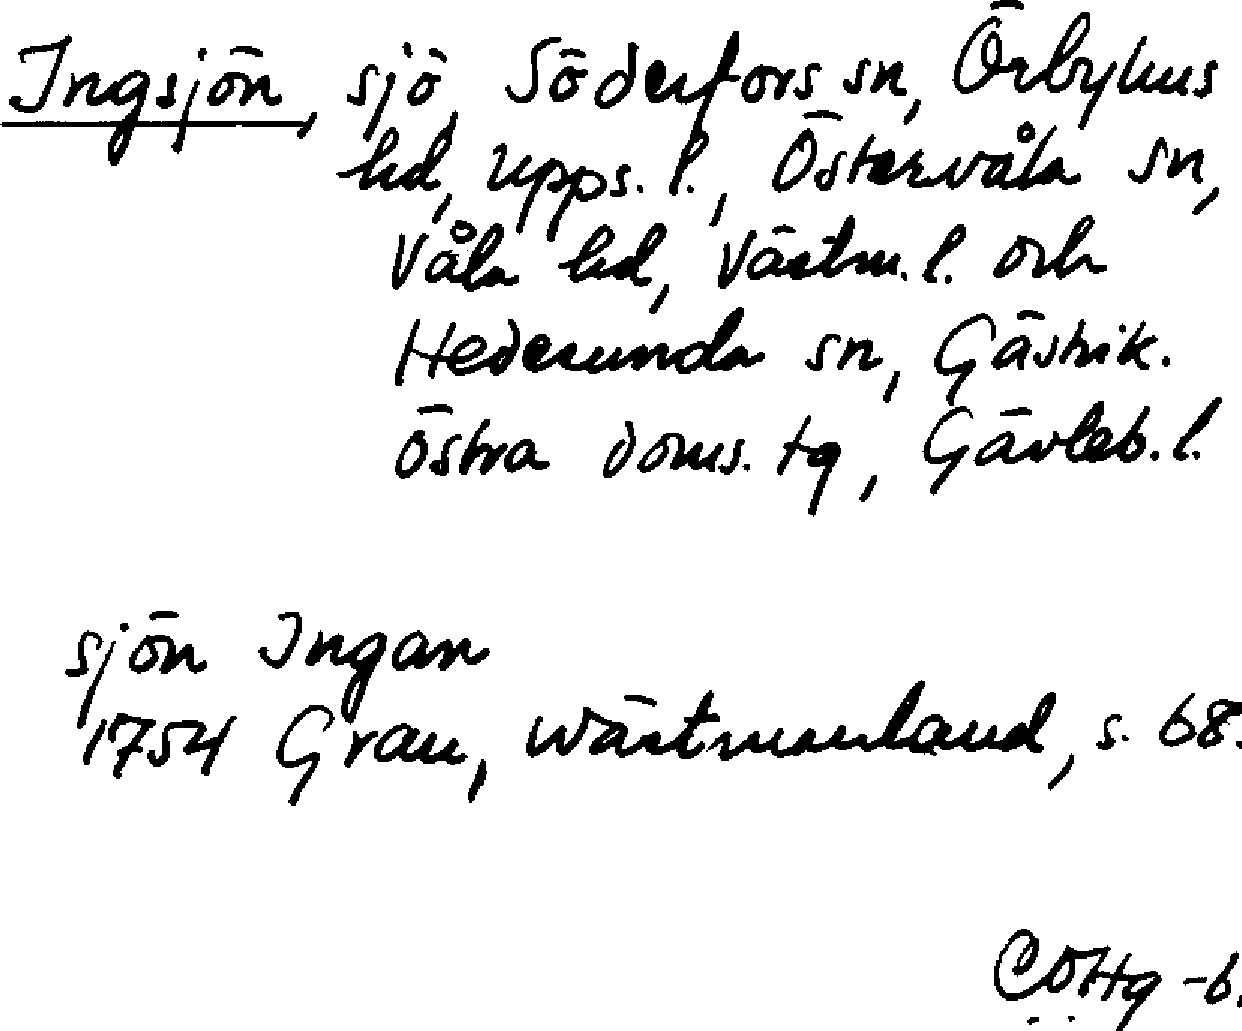 Ingsjön, sjö, Söderfors sn, Örbyhus
hd, Upps. l., Östervåla sn,
Våla hd, Västm. l. och
Hedesunda sn, Gästrik.
Östra doms. tg, Gävleb. l.
sjön Ingan
1754 Grau, Wästmanland, s. 68.